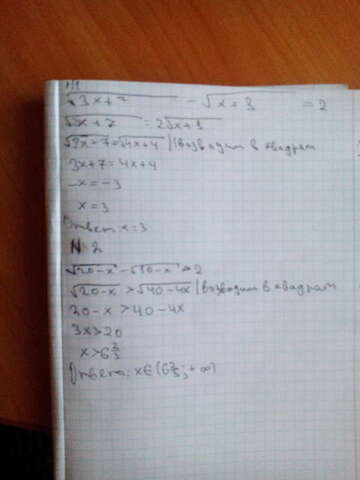 №1
√3x+7 - √x+3 = 2
√3x+7 = 2√x+1
√3x+7=√4x+4 | (возводим в квадрат
3x+7=4x+4
-x=-3
x=3
Ответ x=3
N 2
√20-x - √10-x > 2
√20-x > √40-4x | возводим в квадрат
20-x > 40-4x
3x>20
x>6⅔
Ответ: x∈(6⅔;+∞)